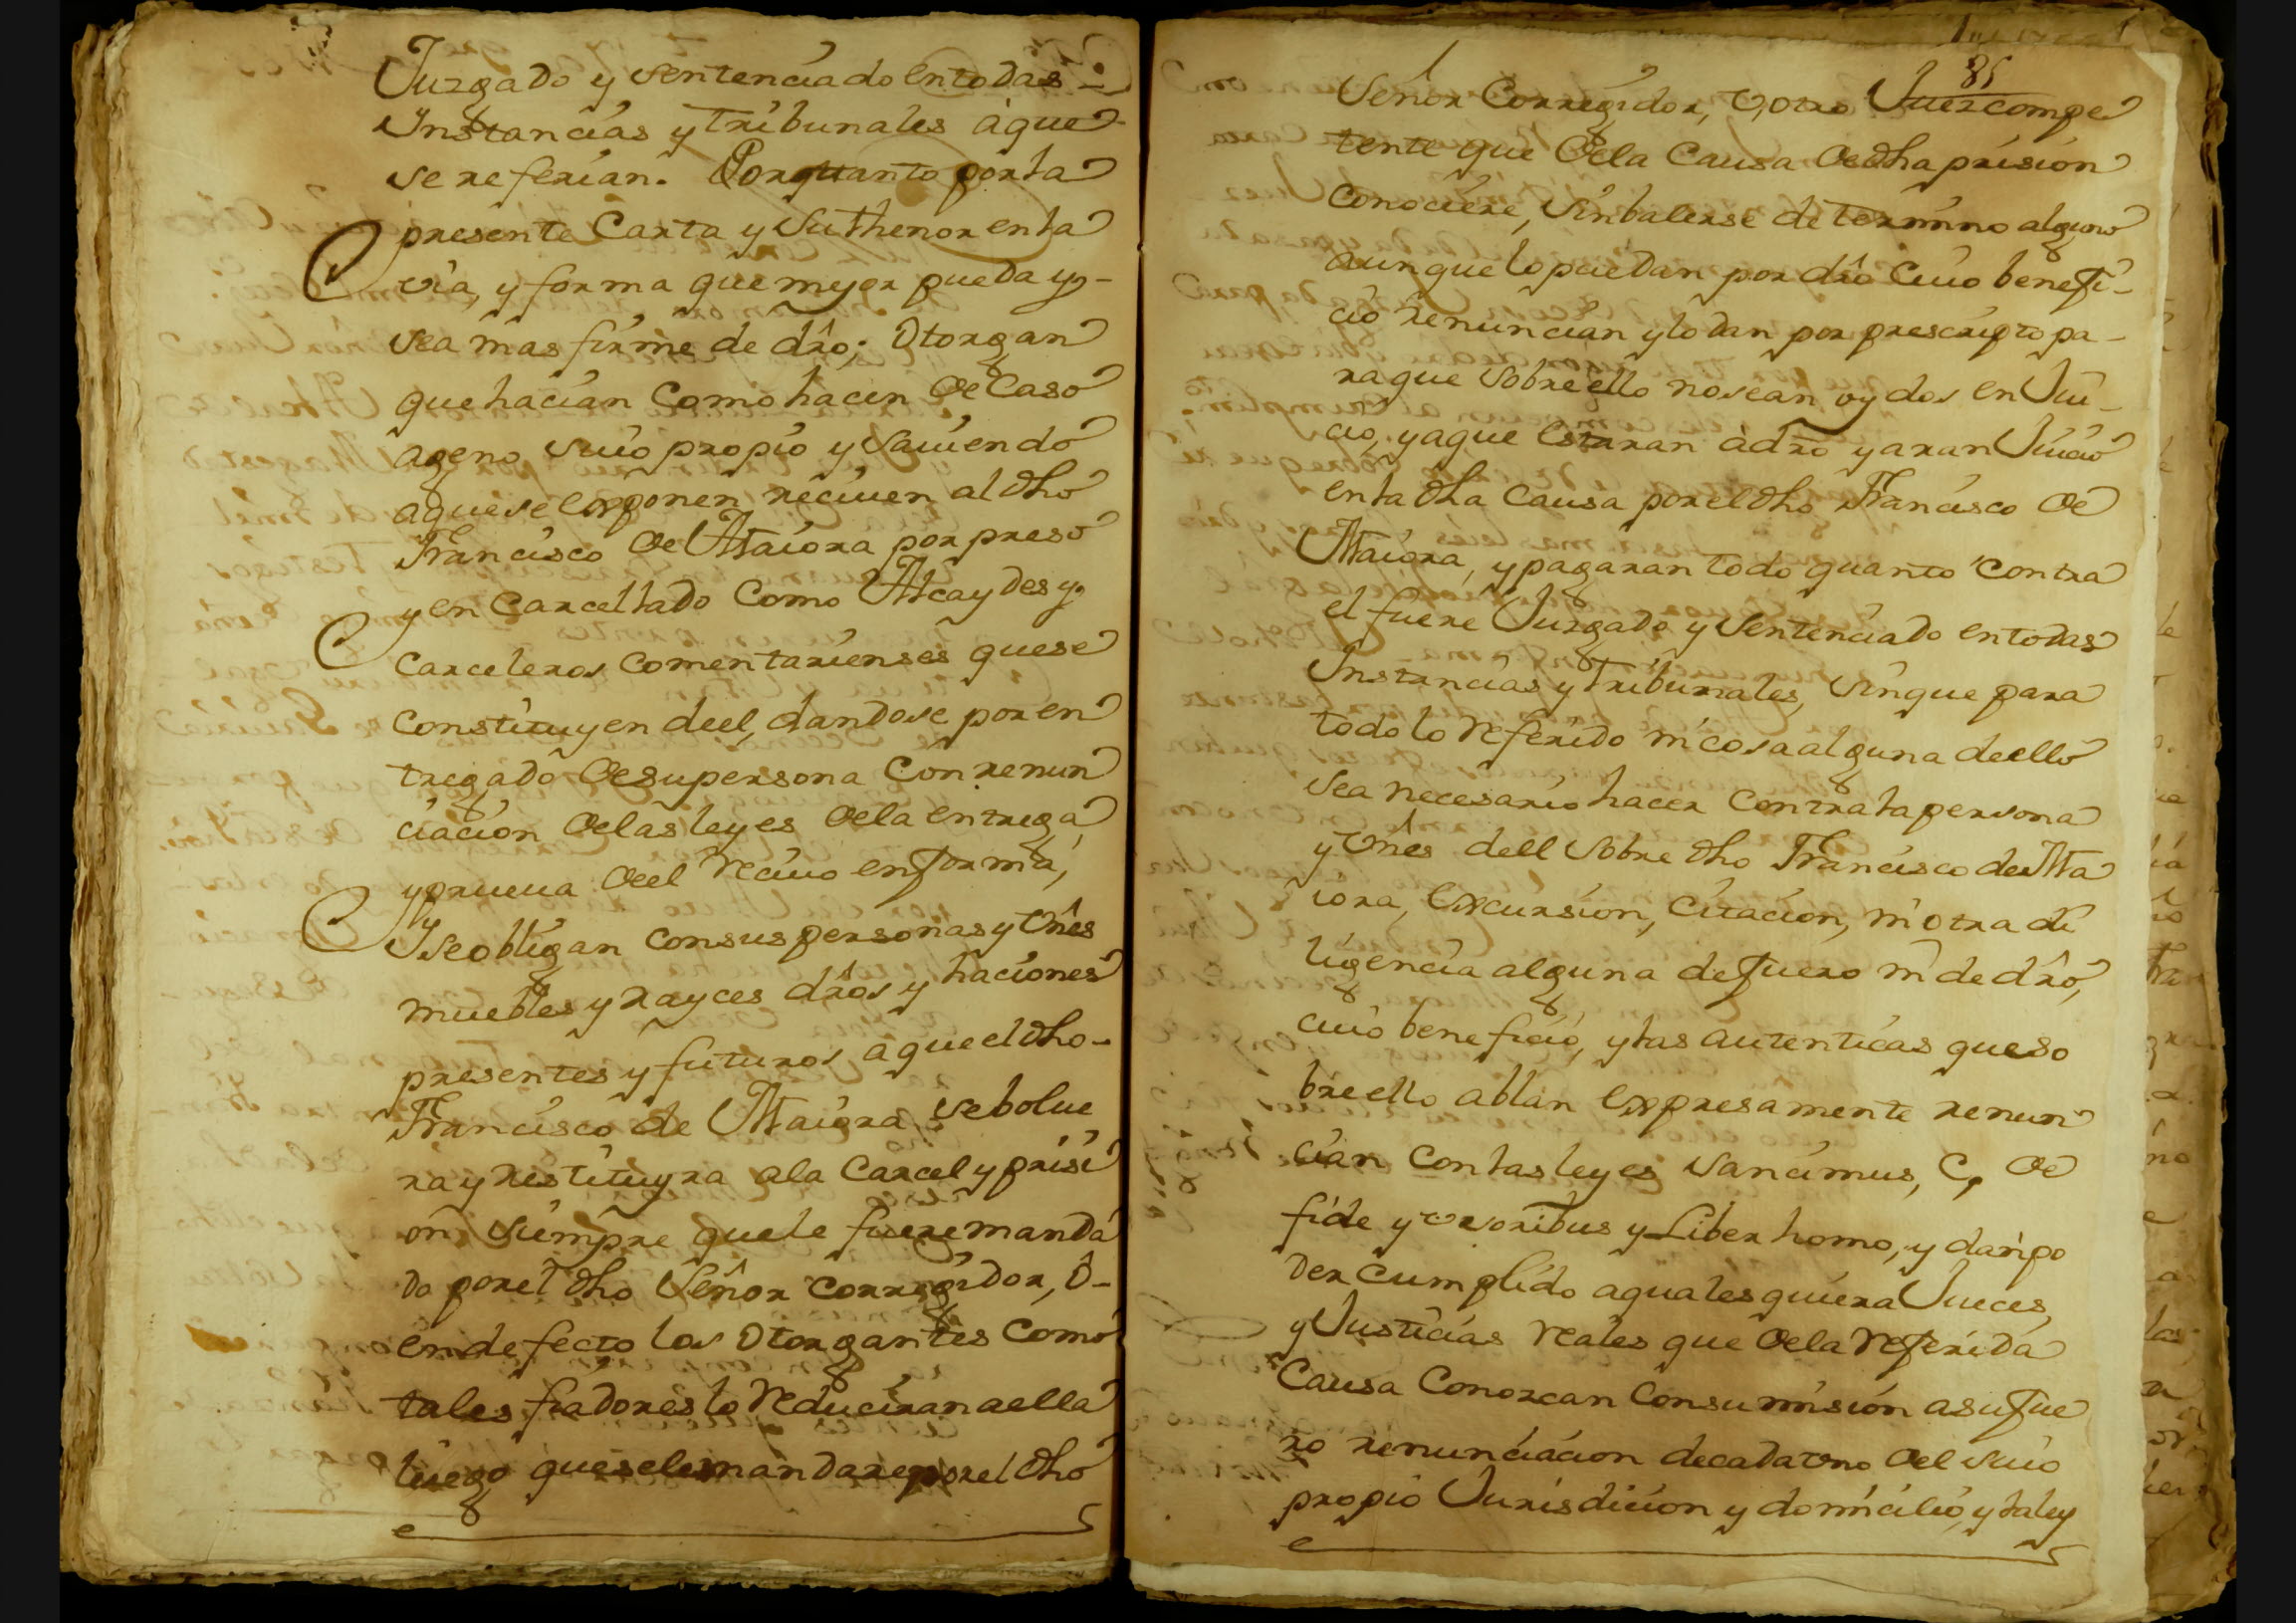 Juzgado y sentenciado en todas
Instancias y tribunales à que
se referian. Por quanto por la
presente Carta y su thenor en la
via, y forma que mejor pueda y
sea mas firme de dr̂o; Otorgan
que hacian Como hacen de Caso
ageno suio propio y saviendo
a que se exponen reciuen al dho
Francisco de Ataiora por preso
y en Carcellado Como Alcaydes y
Carceleros Comentarienses que se
Constituyen deel, dandose por en
tregado de su persona Con renun
ciacion de las leyes de la entrega
y prueua deel reciuo en forma,
Y se obligan con sus personas y vnês
muebles y rayces drôs y haciones
presentes y futuros a que el dho
Francisco de Ataiora se bolue
ra y restituyra a la Carcel y prisi
on siempre que le fuere manda
do por el dho Señor corregidor, ô
en defecto los Otorgantes Como
tales fiadores lo reduciran a ella
luego que se les mandare por el dho
85
Señor Corregidor, v, otro Juez compe
tente que de la Causa de dha prision
Conociere, sin balerse de termino alguno
aunque lo puedan por drô Cuio benefi-
cio renuncian y lo dan por prescripto pa-
ra que sobre ello no sean oydos en Jui-
cio, y a que estaran à dr̃o y aran Juicio
en la dha Causa por el dho Francisco de
Ataiora, y pagaran todo quanto Contra
el fuere Juzgado y sentenciado en todas
Instancias y tribunales, sin que para
todo lo referido ni cosa alguna de ello
sea necesario hacer Contra la persona
y vnês dell sobre dho Francisco de Ata
iora, excursion, Citacion, ni otra di
ligencia alguna de fuero ni de drô,
cuio beneficio, y las autenticas que so
bre ello ablan expresamente renun
cian Con las leyes sancimus, C, de
fide y vsoribus y Liber homo, y dan po
der cumplido a quales quiera Jueces,
y Justicias reales que de la referida
Causa Conozcan Con sumision a su fue
ro renunciacion de cada vno del suio
propio Jurisdicion y domicilio, y la ley